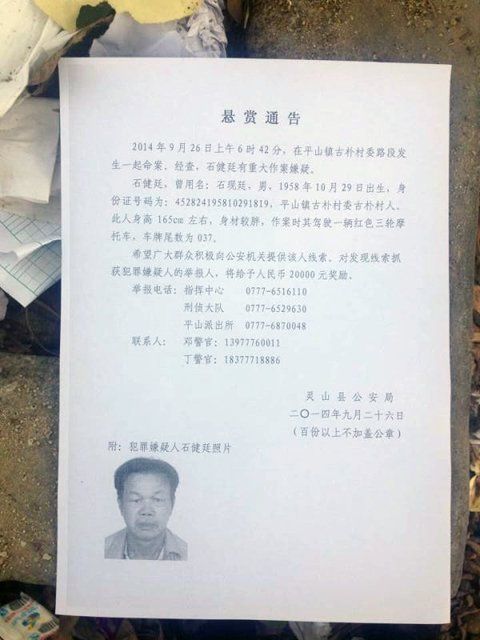 悬赏通告
2014年9月26日上午6时42分，在平山镇古朴村委路段发
生一起命案。经查，石健廷有重大作案嫌疑。
石健廷，曾用名：石现廷，男，1958年10月29日出生，身
份证号码为：452824195810291819，平山镇古朴村委古朴村人。
此人身高165cm左右，身材较胖，作案时其驾驶一辆红色三轮摩
托车，车牌尾数为037。
希望广大群众积极向公安机关提供该人线索。对发现线索抓
获犯罪嫌疑人的举报人，将给予人民币20000元奖励。
举报电话：指挥中心 0777-6516110
刑侦大队 0777-6529630
平山派出所 0777-6870048
联系人：邓警官：13977760011
丁警官：18377718886
灵山县公安局
二〇一四年九月二十六日
（百份以上不加盖公章）
附：犯罪嫌疑人石健廷照片